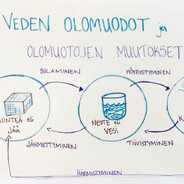 VEDEN OLOMUODOT ja
OLOMUOTOJEN MUUTOKSET
SULAMINEN
HÖYRYSTYMINEN
KIINTEÄ eli
JÄÄ
NESTE eli
VESI
JÄHMETTYMINEN
TIIVISTYMINEN
HÄRMISTYMINEN